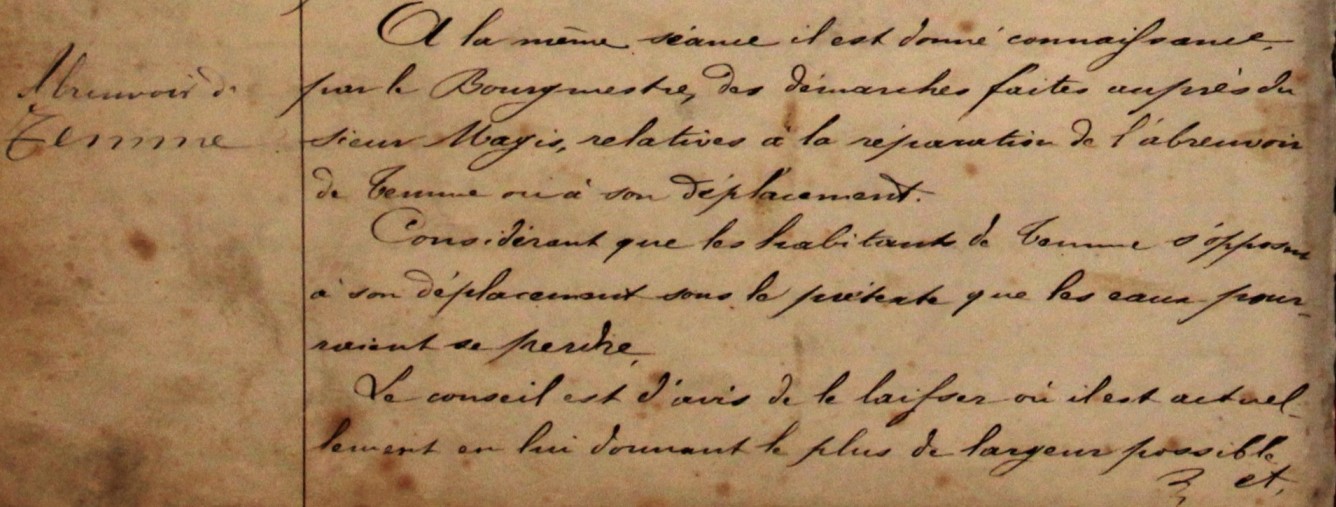 Abreuvoir de
Temme
A la même séance il est donné connaissance,
par le Bourgmestre, des démarches faites auprès du
sieur Magis, relatives à la réparation de l'abreuvoir
de Temme ou à son déplacement.
Considérant que les habitants de Temme s'opposent
à son déplacement sous le prétexte que les eaux pour-
raient se perdre.
Le conseil est d'avis de le laisser où il est actuel-
lement en lui donnant le plus de largeur possible
et,